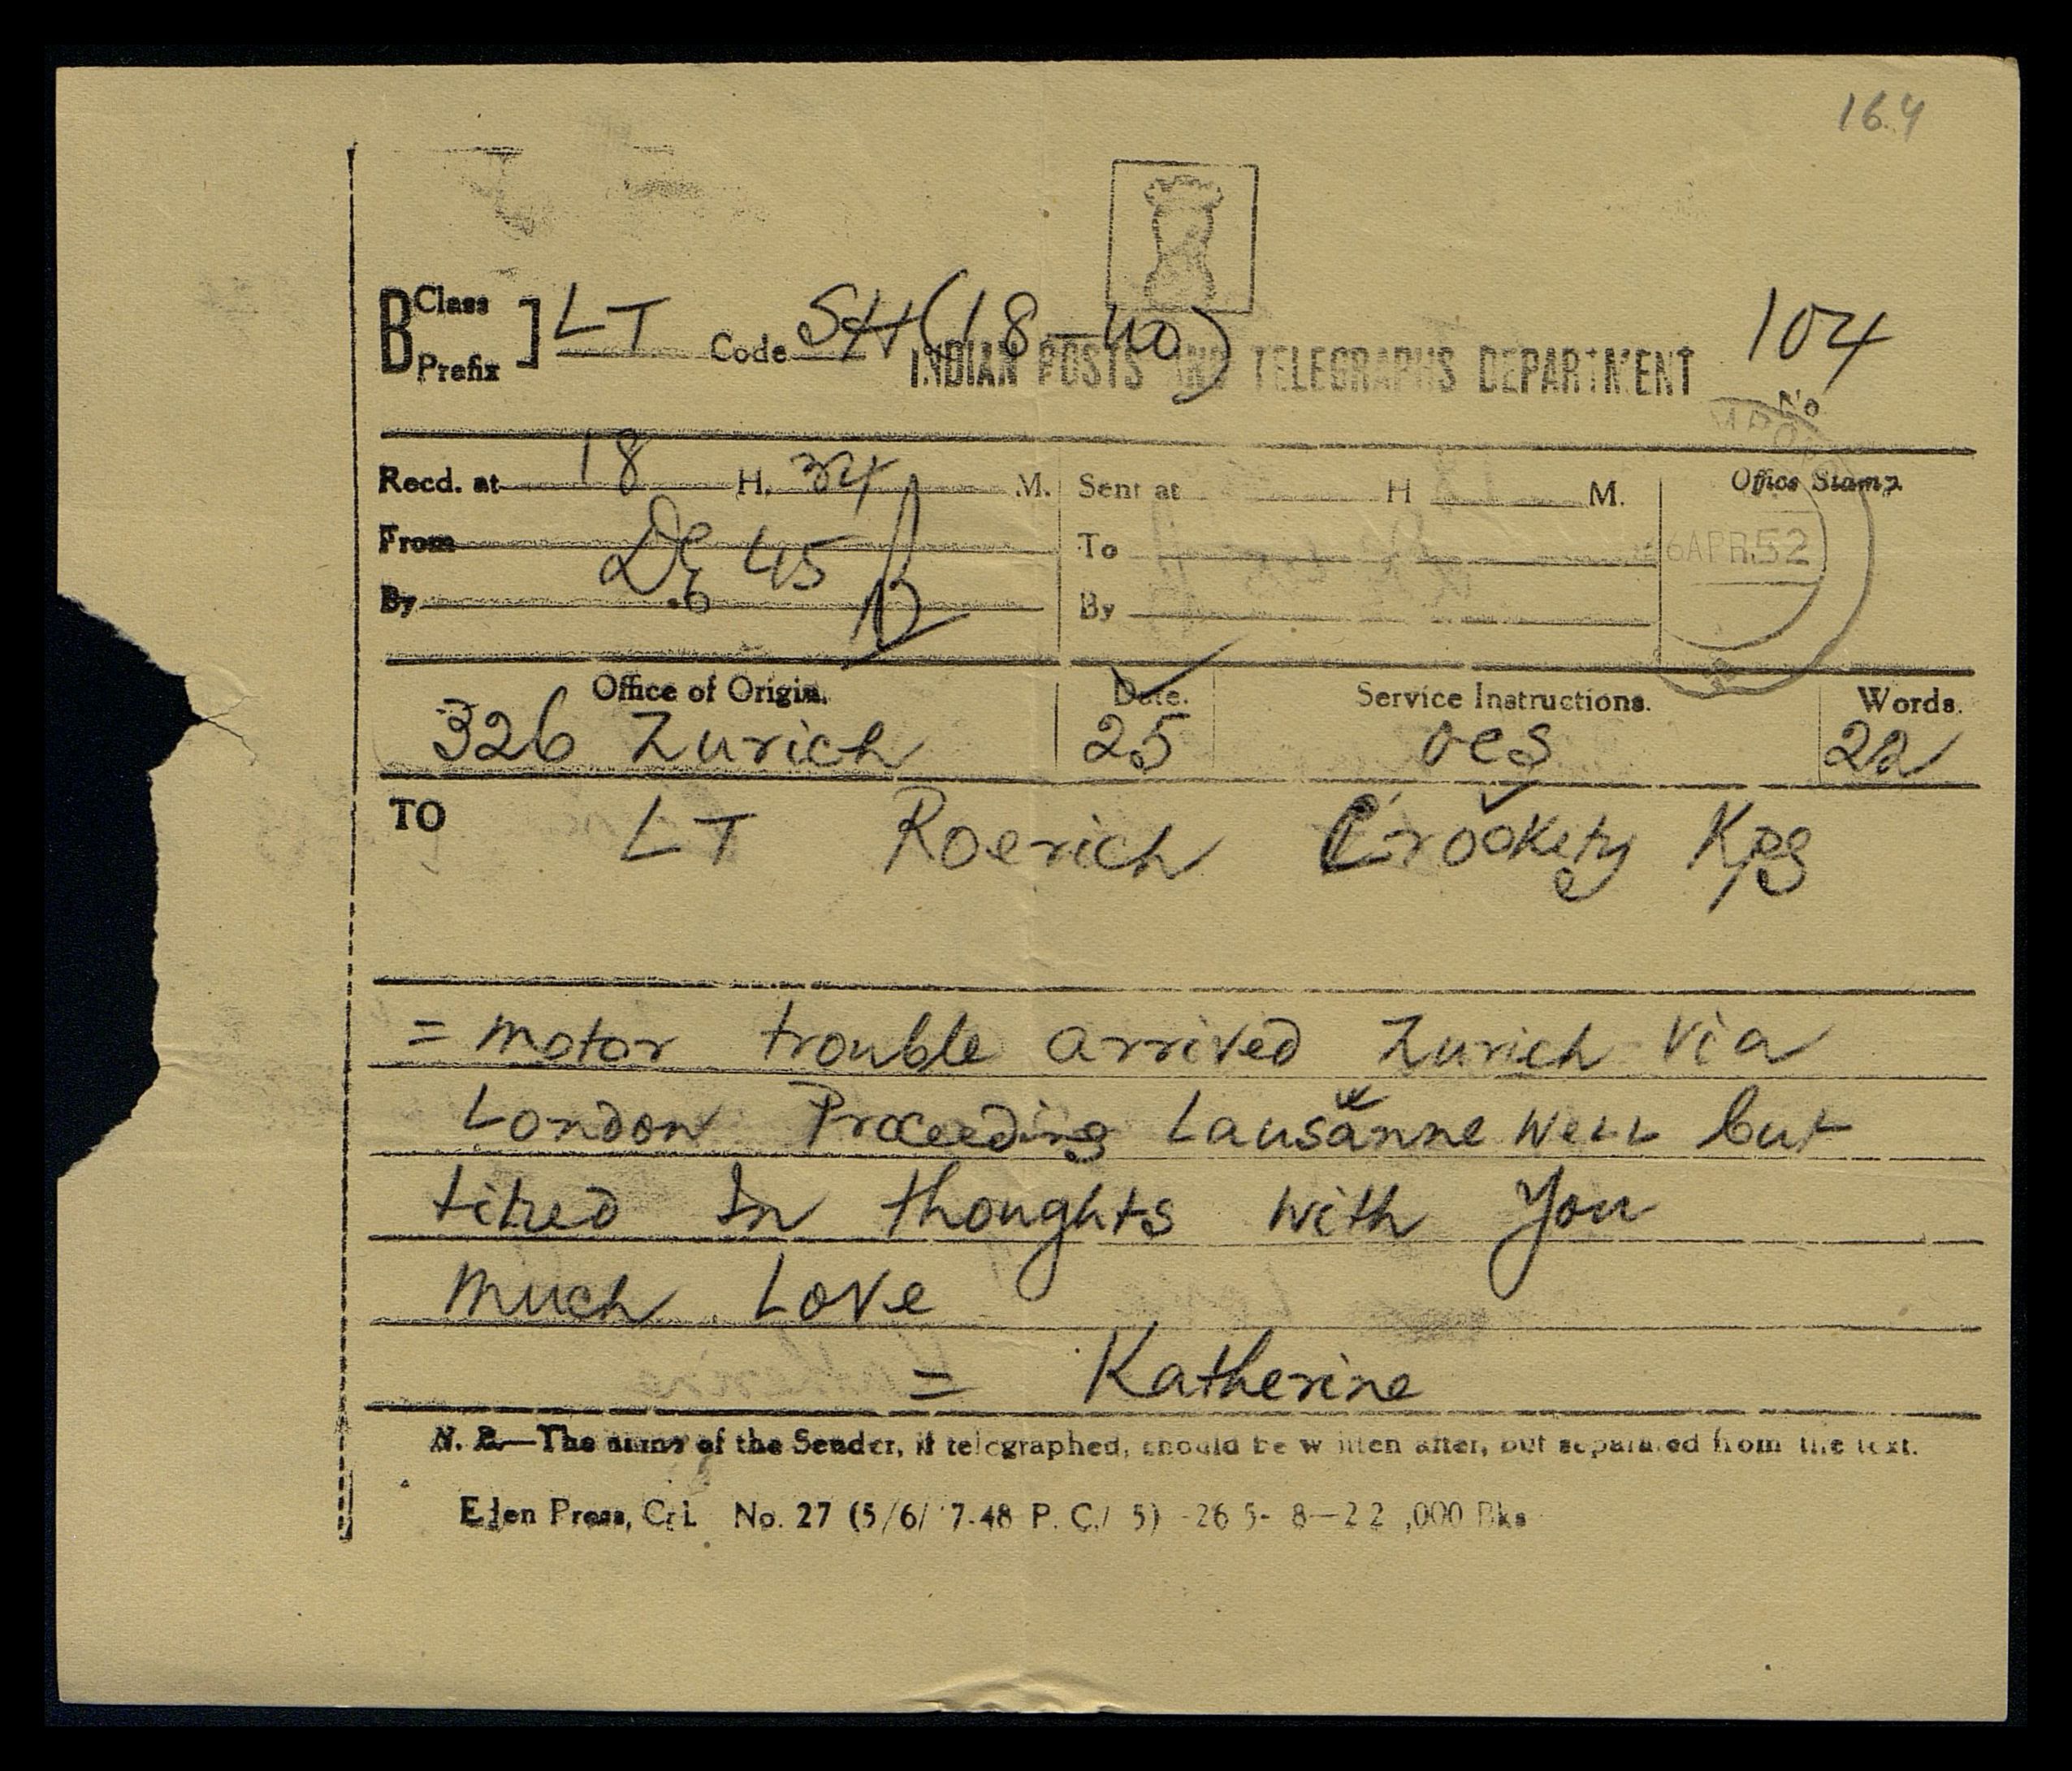 16.4
B Class Prefix ] LT Code SH (18-40) 104
INDIAN POSTS AND TELEGRAPHS DEPARTMENT
No
Recd. at 18 H. 34 M. Sent at H M. Office Stamp
From De 45 To
6APR52
By By
Office of Origin. Date. Service Instructions. Words.
326 Zurich 25 22
TO LT Roerich Crookety Kpg
= motor trouble arrived Zurich via
London Proceeding Lausanne well but
tired In thoughts with you
much Love
= Katherine
N. B.—The name of the Sender, if telegraphed, should be written after, but separated from the text.
Eden Press, Cal. No. 27 (5/6/